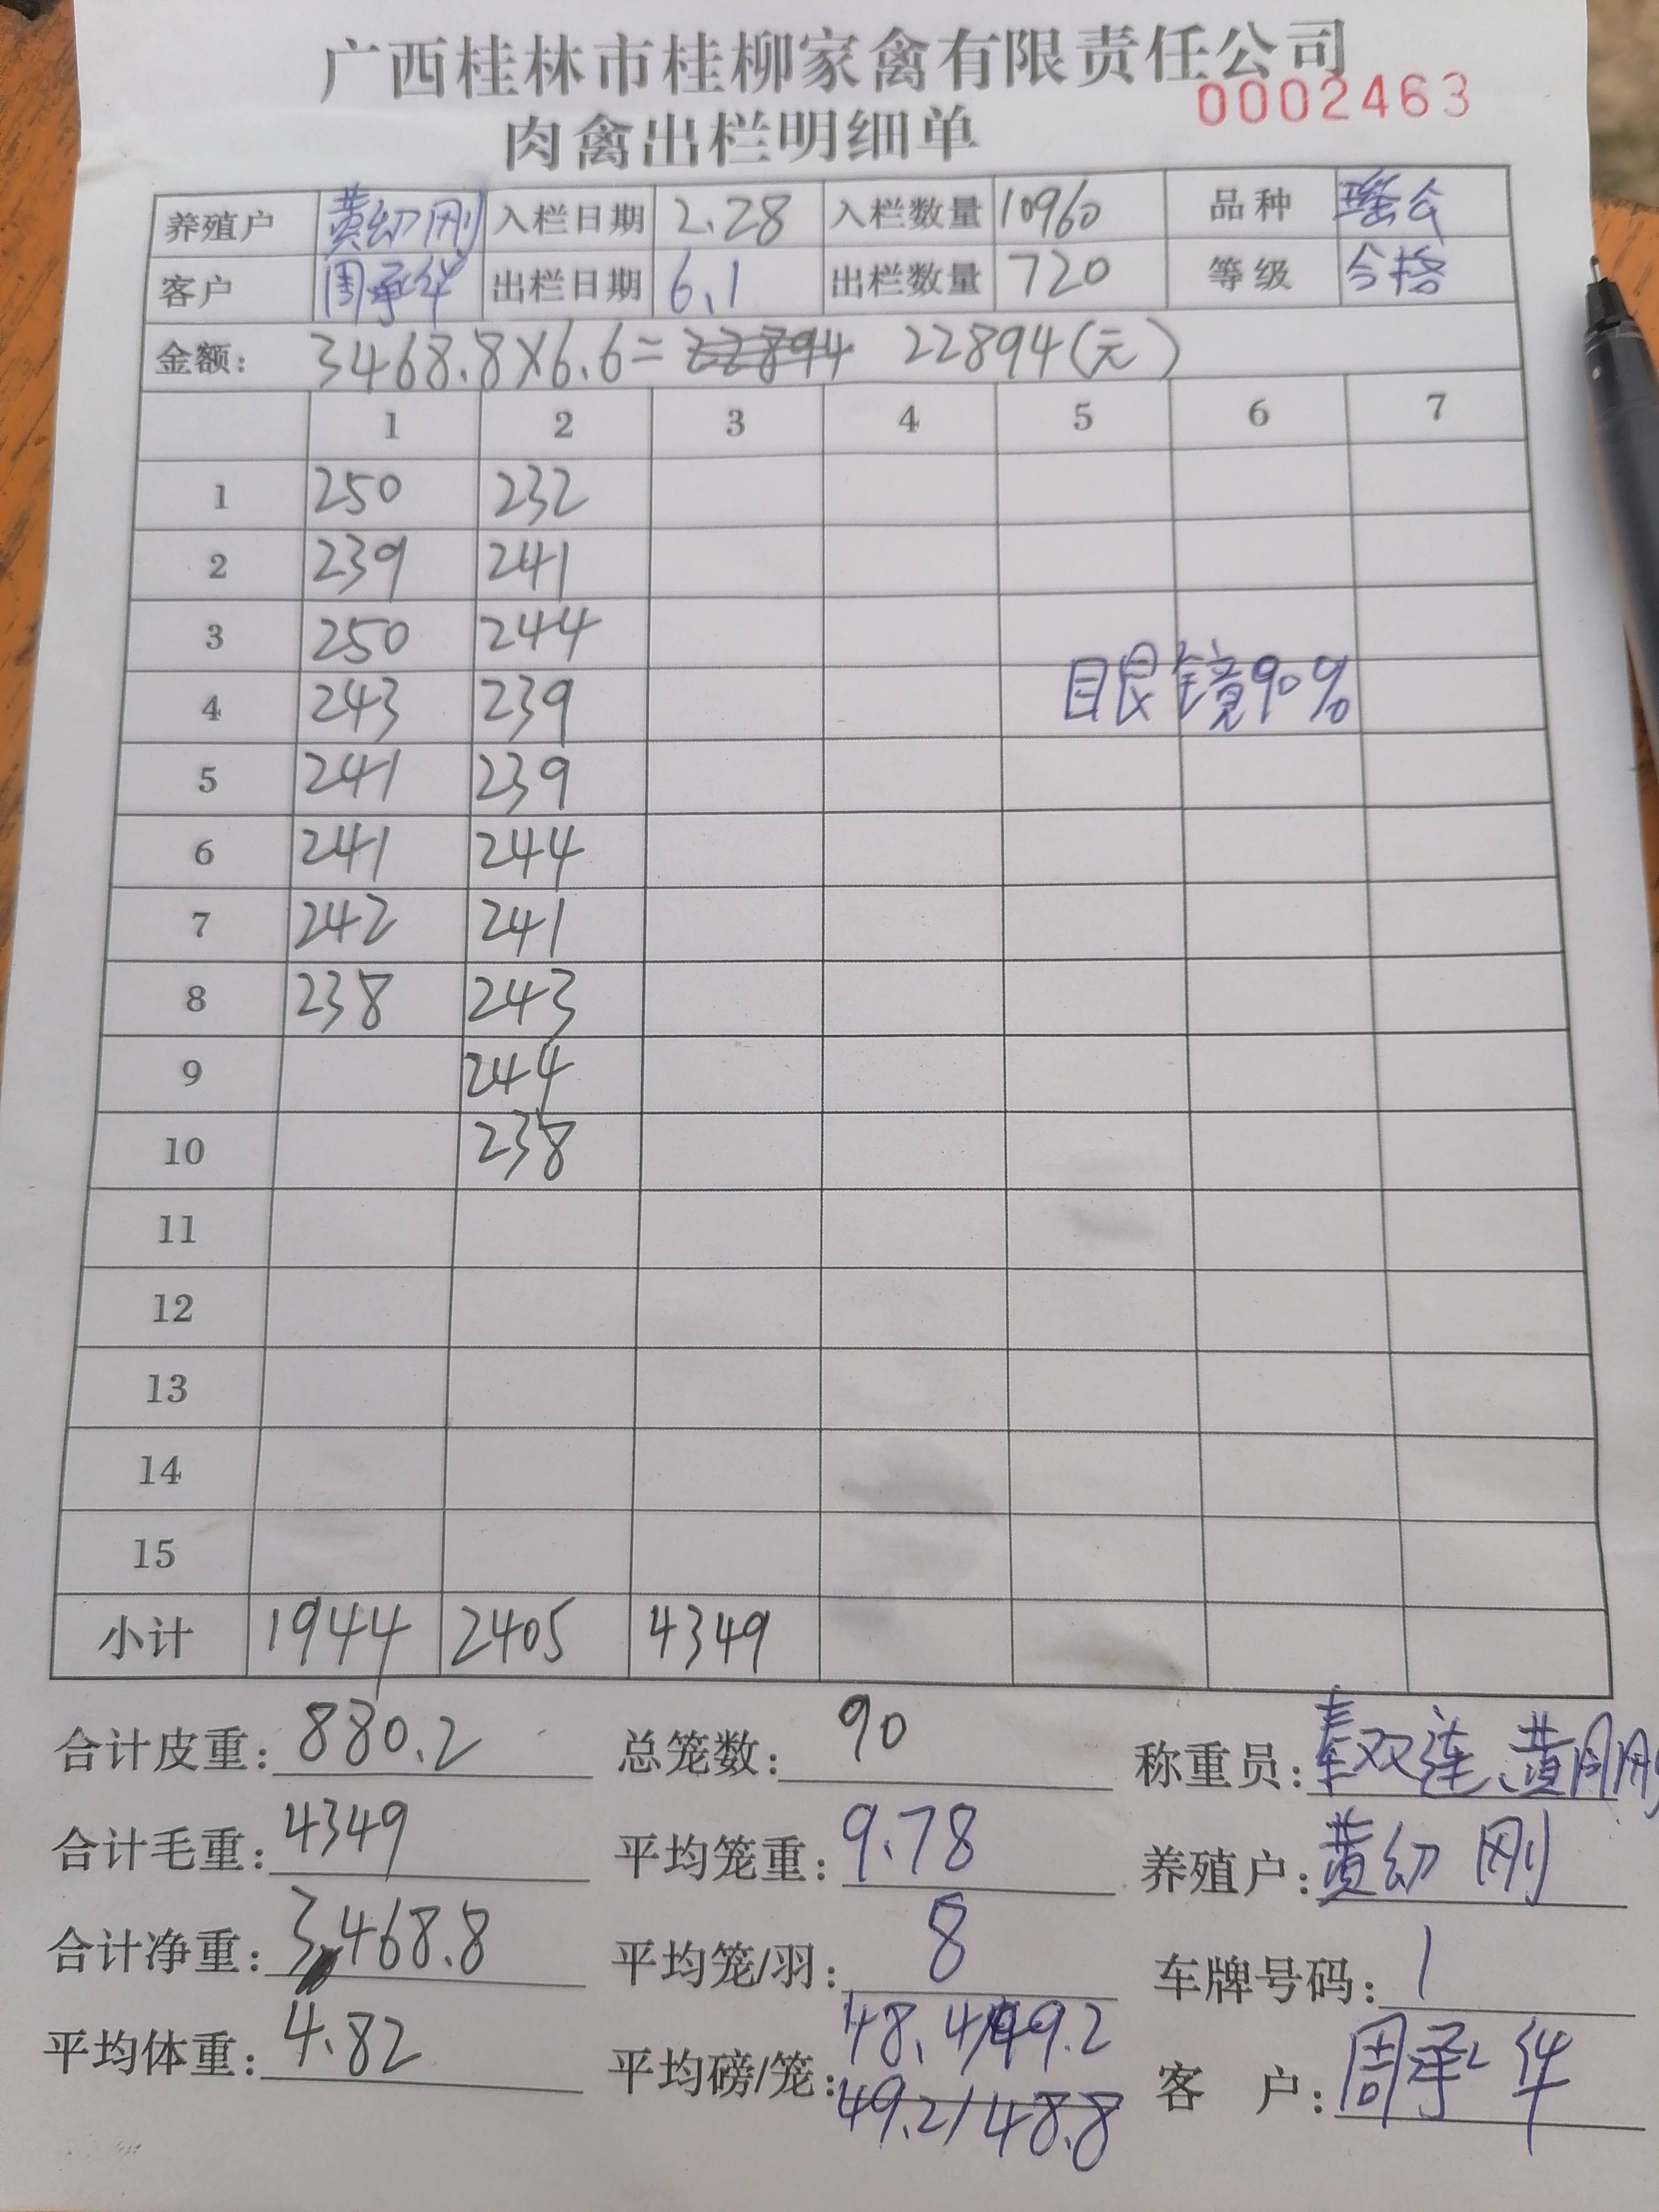 广西桂林市桂柳家禽有限责任公司
0002463
肉禽出栏明细单
养殖户 黄幼刚 入栏日期 2.28 入栏数量 10960 品种
客户 周承华 出栏日期 6.1 出栏数量 720 等级 合格
金额: 3468.8×6.6= 22894 22894(元)
1 2 3 4 5 6 7
1 250 232
2 239 241
3 250 244
4 243 239 眼镜90%
5 241 239
6 241 244
7 242 241
8 238 243
9 244
10 238
11
12
13
14
15
小计 1944 2405 4349
合计皮重: 880.2 总笼数: 90 称重员: 双连、黄
合计毛重: 4349 平均笼重: 9.78 养殖户: 黄幼刚
合计净重: 3468.8 平均笼/羽: 8 车牌号码: 1
平均体重: 4.82 平均磅/笼: 48.4/49.2 客户: 周承华
49.2/48.8